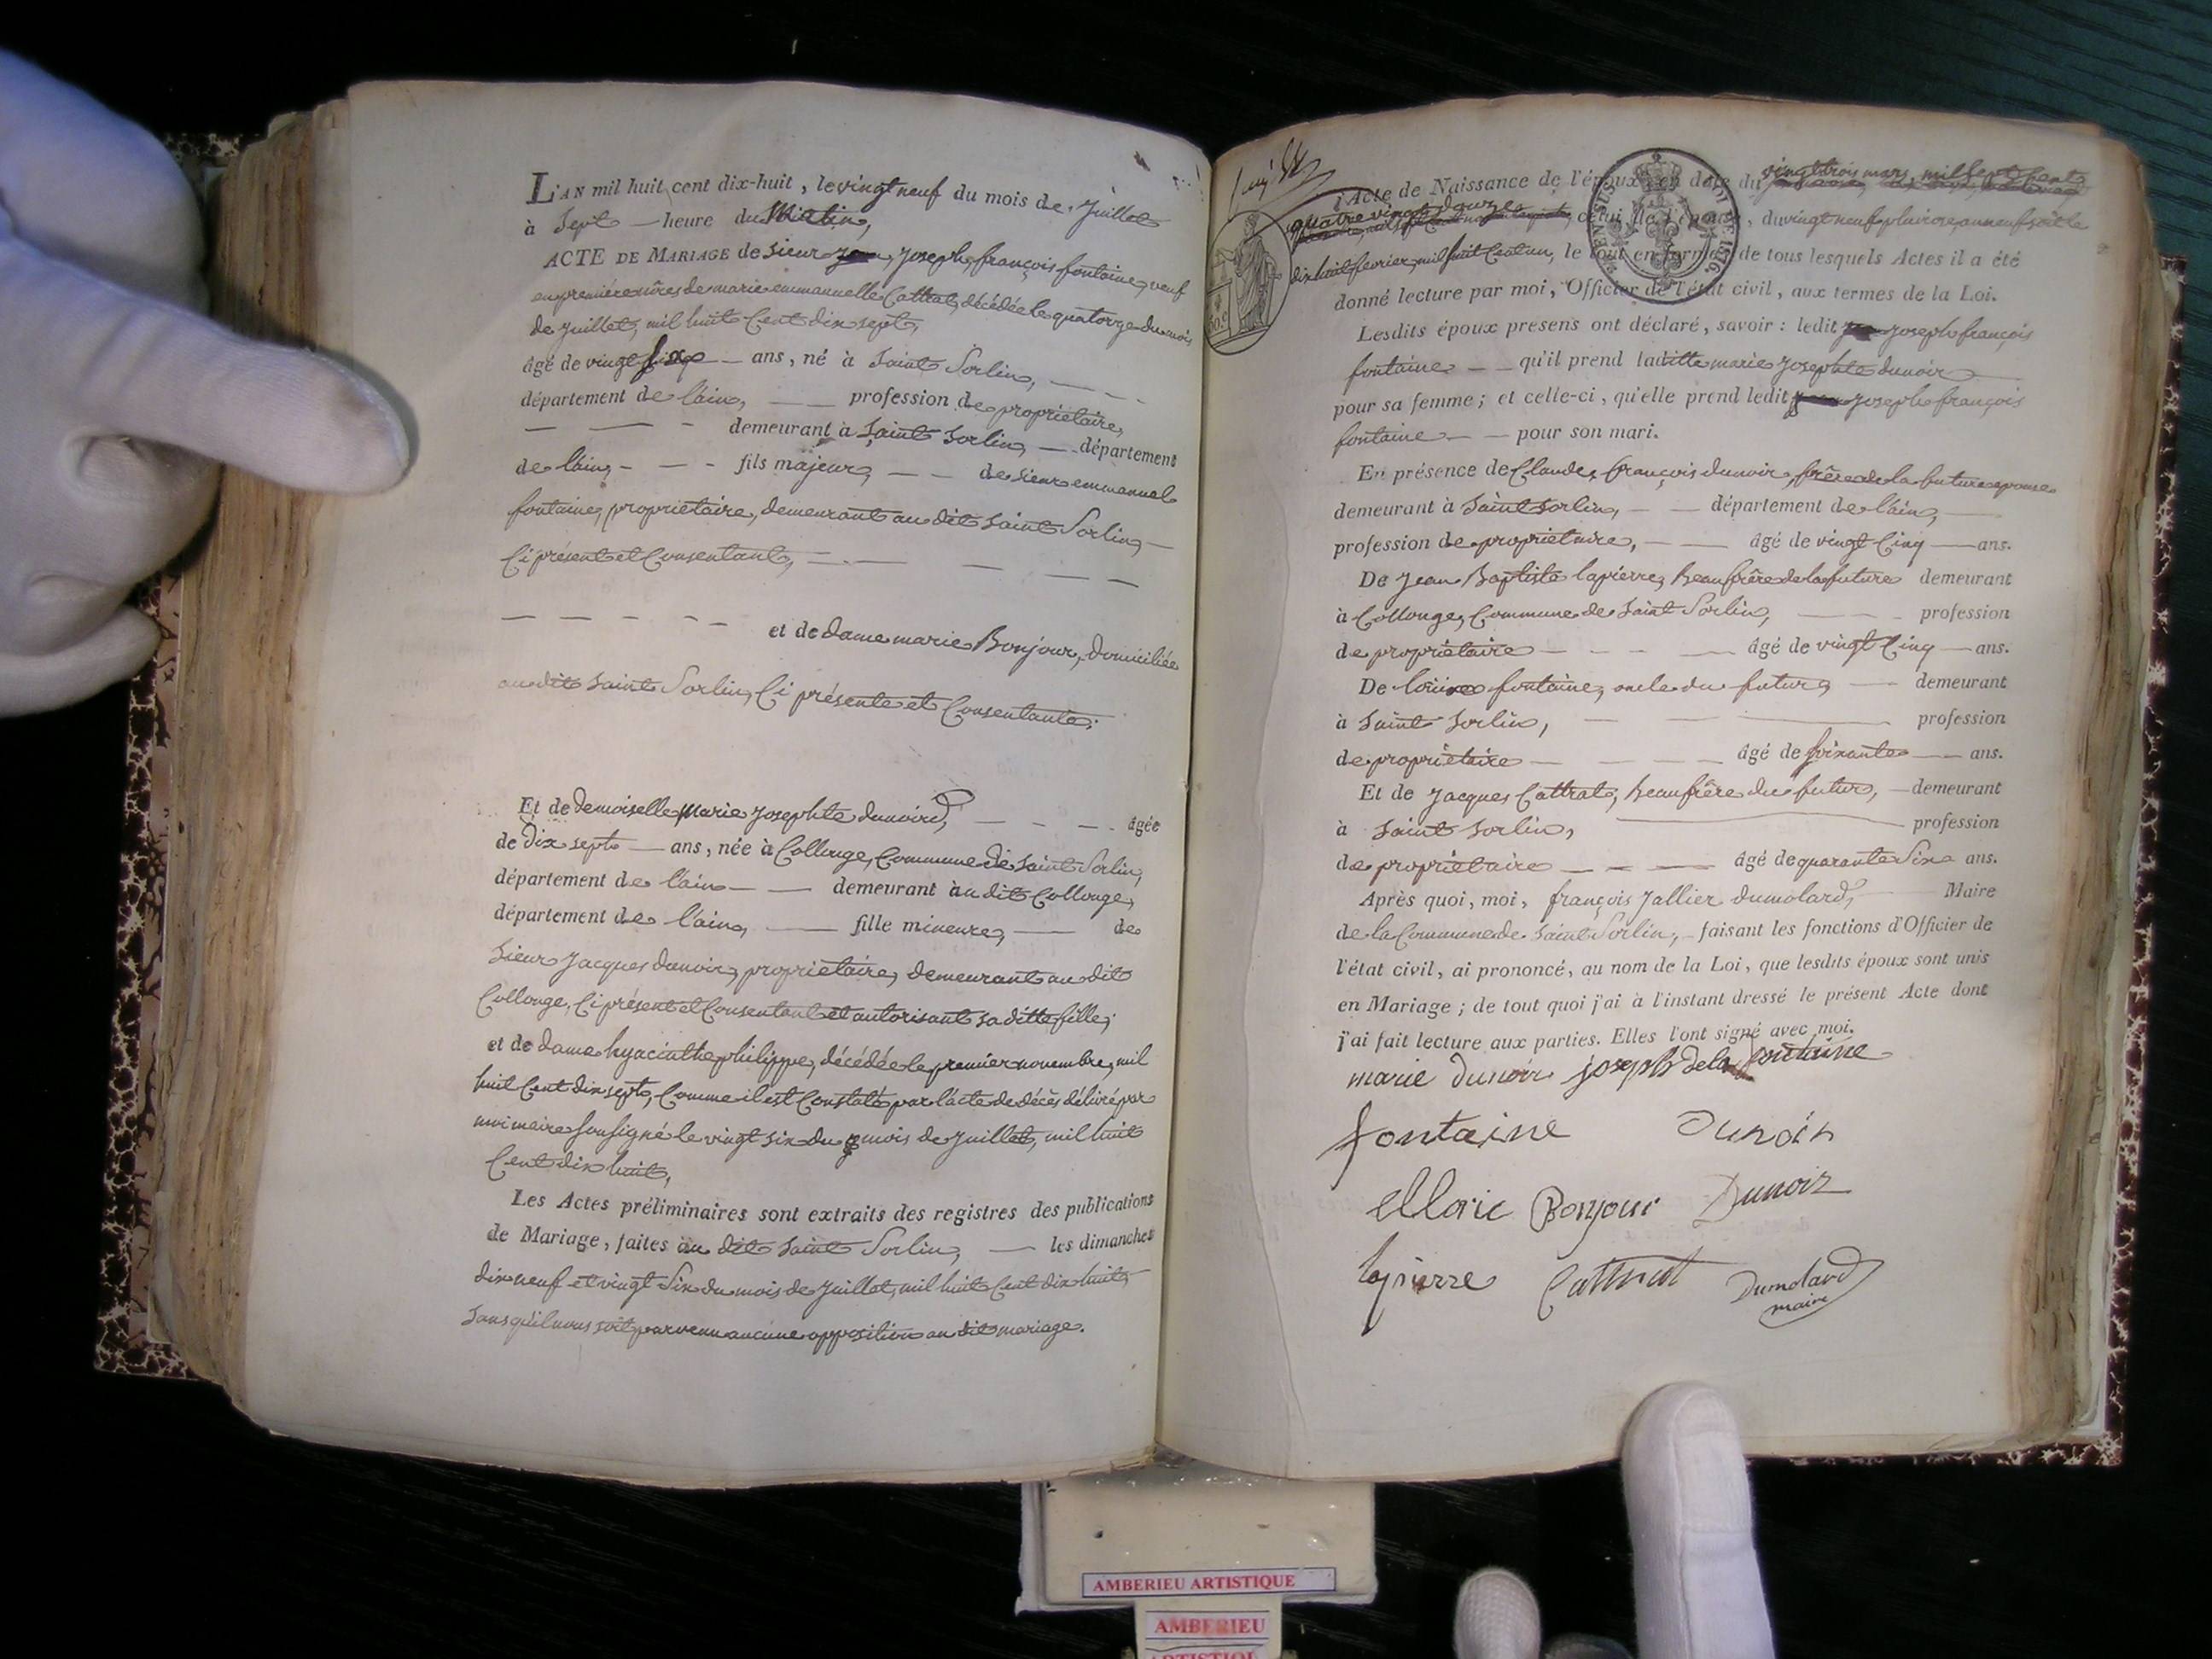 L'AN mil huit cent dix-huit, le vingt neuf du mois de Juillet
à Sept heure du Matin,
ACTE DE MARIAGE de sieur Joseph françois fontaine, veuf
en premiere nôces de marie emmanuelle Cattrat, décédée le quatorze du mois
de Juillet, mil huit Cent dix sept,
âgé de vingt six ans, né à Saint Sorlin,
département de l'ain, profession de propriétaire,
demeurant à Saint Sorlin, département
de l'ain, fils majeur, de sieur emmanuel
fontaine, propriétaire, demeurant au dit Saint Sorlin,
Ci présent et Consentant,
et de dame marie Bonjour, domiciliée
au dit Saint Sorlin, Ci présente et Consentante;
Et de demoiselle Marie Josephte dunoir, âgée
de dix sept ans, née à Collonge, Commune de Saint Sorlin,
département de l'ain demeurant au dit Collonge,
département de l'ain, fille mineure, de
Sieur Jacques dunoir, propriétaire, demeurant au dit
Collonge, Ci présent et Consentant et autorisant sa ditte fille;
et de dame hyacinthe philippe, décédée le premier novembre, mil
huit Cent dix sept, Comme il est Constaté par l'acte de décès délivré par
moi maire soussigné le vingt six du mois de Juillet, mil huit
Cent dix huit,
Les Actes préliminaires sont extraits des registres des publications
de Mariage, faites au dit Saint Sorlin, les dimanches
dix neuf et vingt Six du mois de Juillet, mil huit Cent dix huit,
Sans qu'il nous soit parvenu aucune opposition au dit mariage.
l'Acte de Naissance de l'époux en date du vingt trois mars, mil sept cents
quatre vingt douze, celui de l'épouse, du vingt neuf pluviose, an neuf soit le
dix huit fevrier, mil huit Cent un, le tout en forme; de tous lesquels Actes il a été
donné lecture par moi, Officier de l'état civil, aux termes de la Loi.
Lesdits époux presens ont déclaré, savoir: ledit Joseph françois
fontaine qu'il prend laditte marie Josephte dunoir
pour sa femme; et celle-ci, qu'elle prend ledit Joseph françois
fontaine pour son mari.
En présence de Claude, françois dunoir, frère de la future epouse
demeurant à Saint Sorlin, département de l'ain,
profession de propriétaire, âgé de vingt Cinq ans.
De Jean Baptiste lapierre, Beau frère de la future demeurant
à Collonge, Commune de Saint Sorlin, profession
de propriétaire âgé de vingt Cinq ans.
De fontaine, oncle du futur, demeurant
à Saint Sorlin, profession
de propriétaire âgé de soixante ans.
Et de Jacques Cattrat, Beau frère du futur, demeurant
à Saint Sorlin, profession
de propriétaire âgé de quarante Six ans.
Après quoi, moi, françois Jallier dumolard, Maire
de la Commune de Saint Sorlin, faisant les fonctions d'Officier de
l'état civil, ai prononcé, au nom de la Loi, que lesdits époux sont unis
en Mariage; de tout quoi j'ai à l'instant dressé le présent Acte dont
j'ai fait lecture aux parties. Elles l'ont signé avec moi.
marie dunoir joseph dela fontaine
fontaine Dunoir
Marie Bonjour Dunoir
lapierre Cattrat Dumolard
maire
AMBERIEU ARTISTIQUE
AMBERIEU
ARTISTIQUE